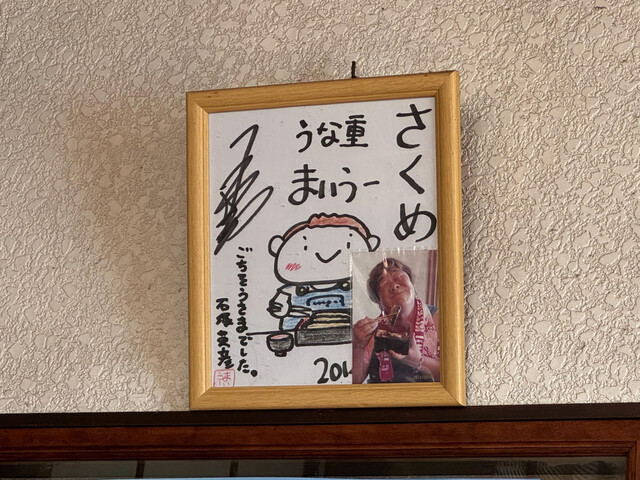 さくめ
うな重
まいうー
ごちそうさまでした。
石塚英彦
201
うま